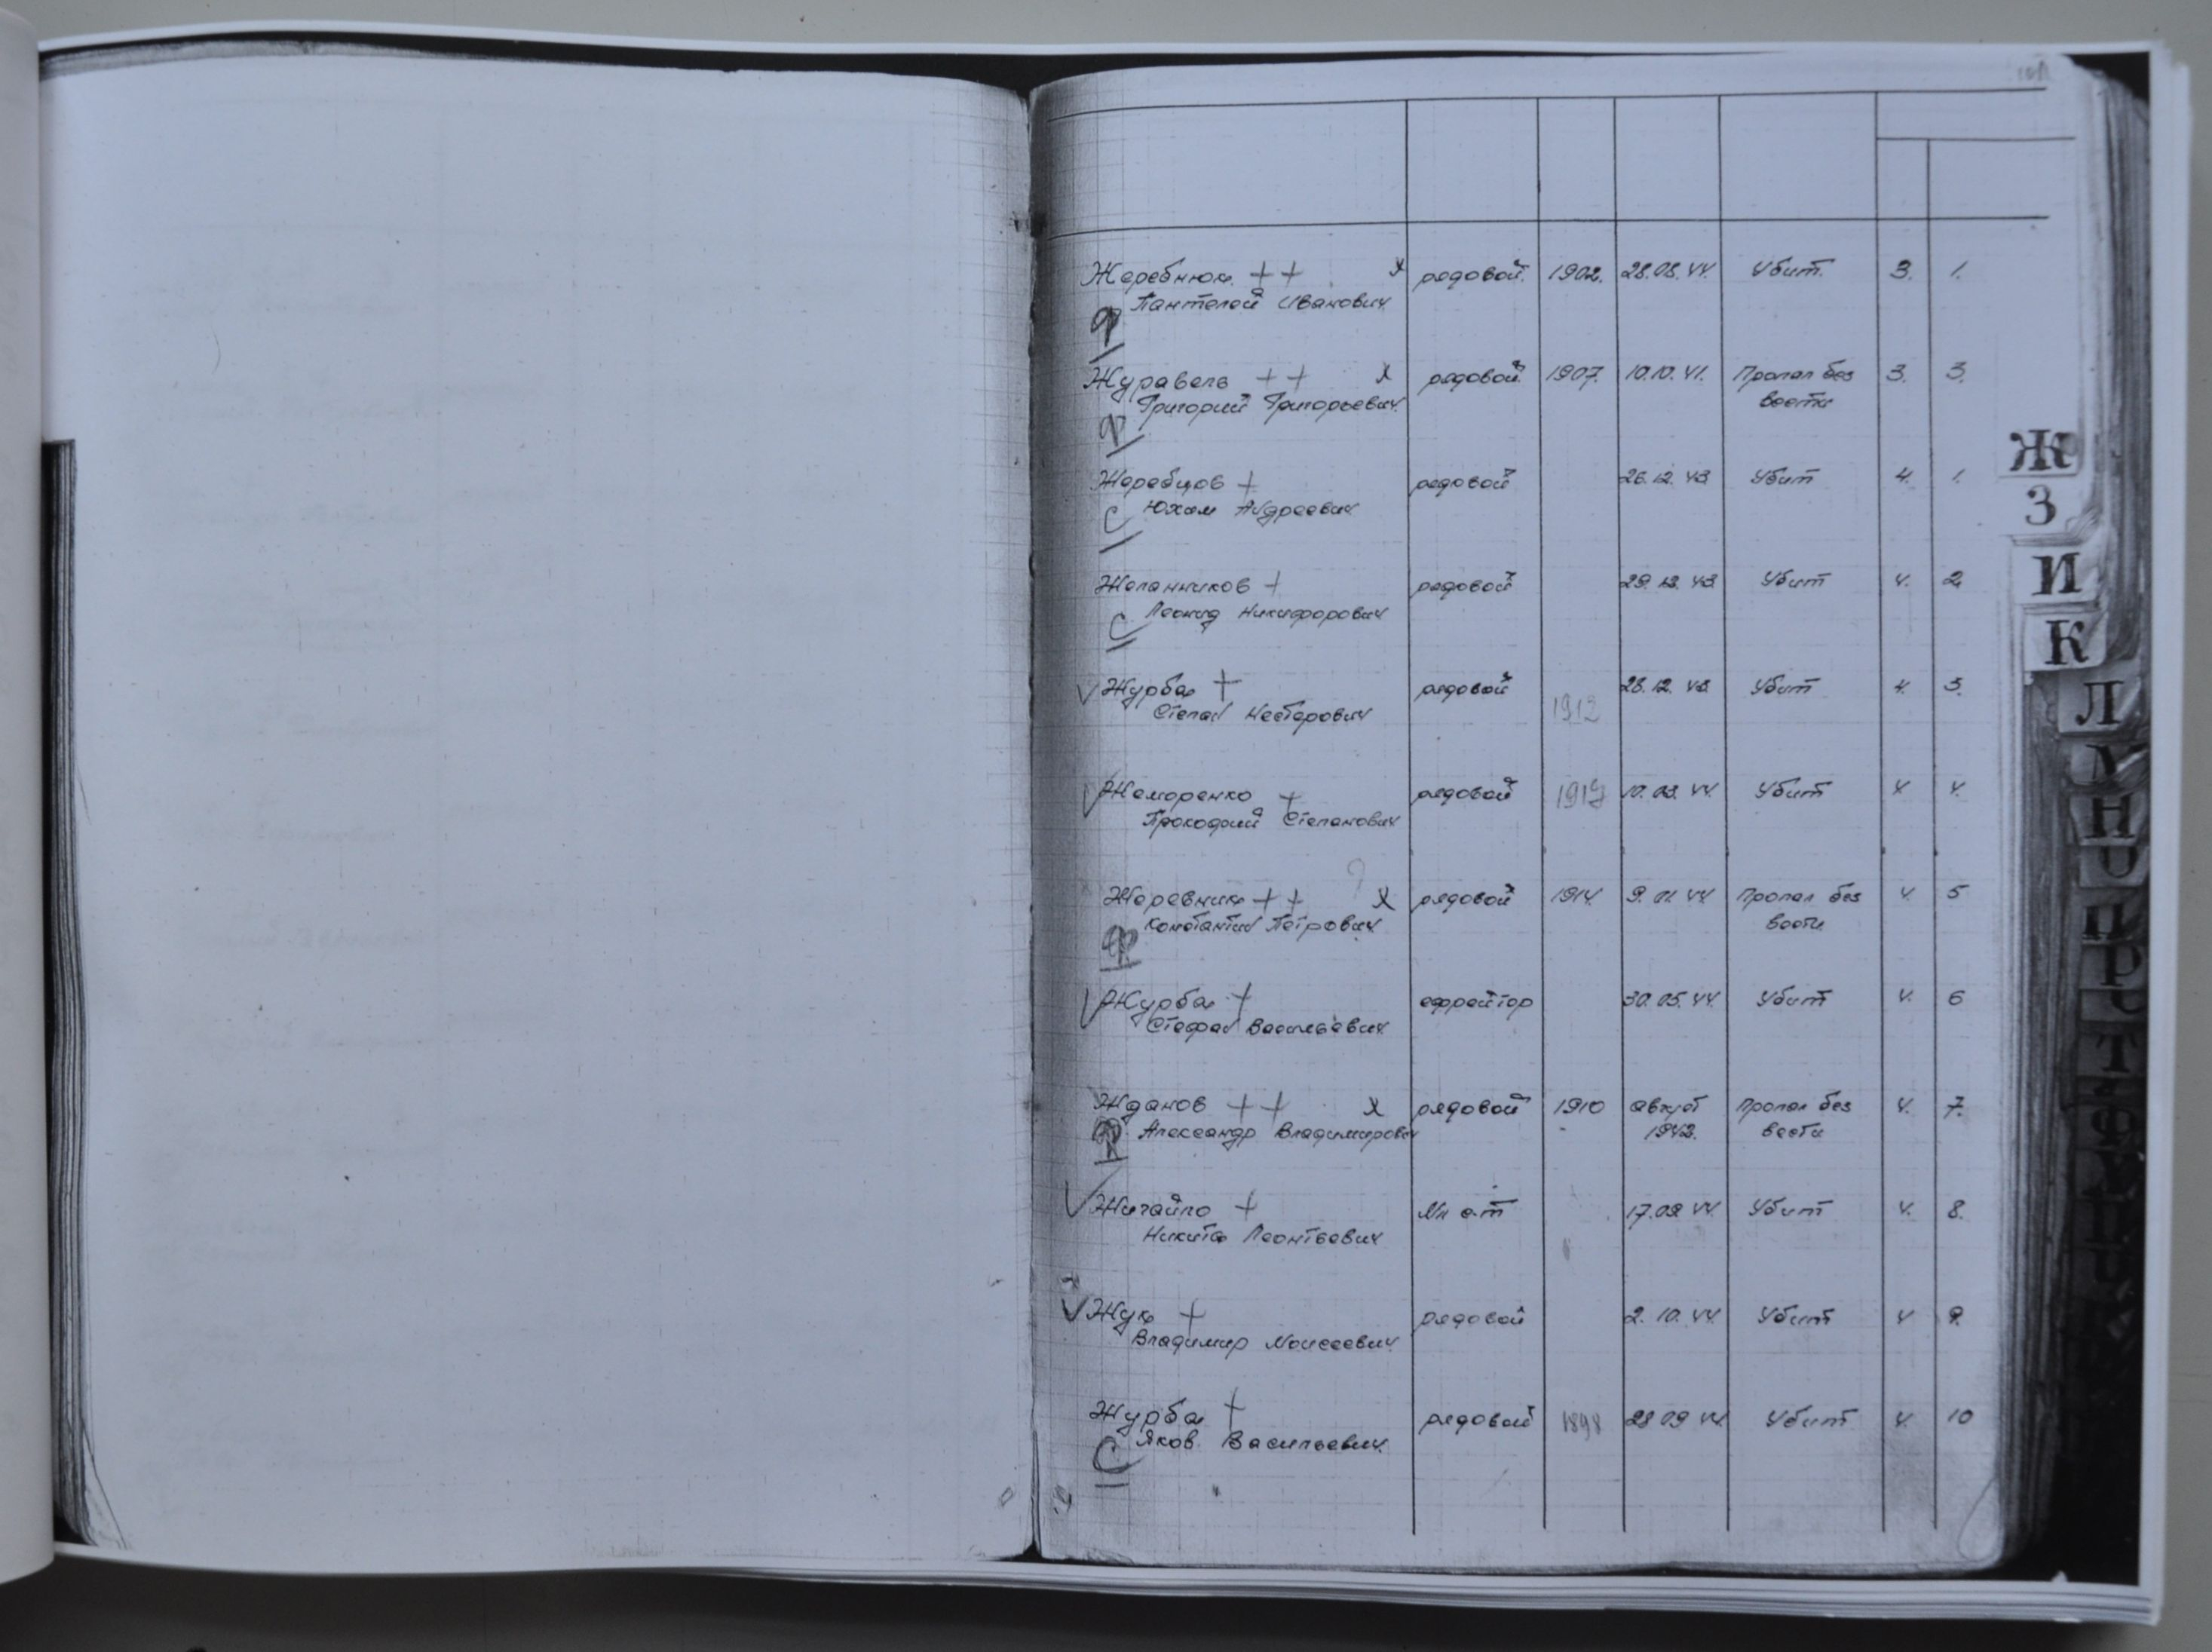 Жеребнюк ++ х рядовой. 1902. 28.08.44. Убит. 3. 1.
Пантелей Иванович
Ф
Журавель ++ х рядовой. 1907. 10.10.41. Пропал без 3. 3.
Григорий Григорьевич. вести
Ф
Жеребцов + рядовой 26.12.43 Убит 4. 1.
Юхим Андреевич
С
Желанников + рядовой 29.12.43 Убит 4. 2
Леонид Никифорович
С
Журба + рядовой 28.12.43 Убит 4. 3.
Степан Нестерович 1912
Жеморенко + рядовой 1919 10.03.44. Убит 4 4.
Прокофий Степанович
?
Жеревник ++ х рядовой 1914. 9.01.44 Пропал без 4. 5
Константин Петрович вести
Ф
Журба + ефрейтор 30.05.44. Убит 4. 6
Стефан Васильевич
Жданов ++ х рядовой 1910 август Пропал без 4. 7.
Александр Владимирович 1943. вести
Жигайло + Мл с-т 17.09 44 Убит 4. 8.
Никита Леонтьевич
Жук + рядовой 2.10.44 Убит 4 9.
Владимир Моисеевич
Журба + рядовой 1898 28 09 44 Убит 4. 10
Яков Васильевич.
С
Ж
З
И
К
Л
М
Н
О
П
Р
С
Т